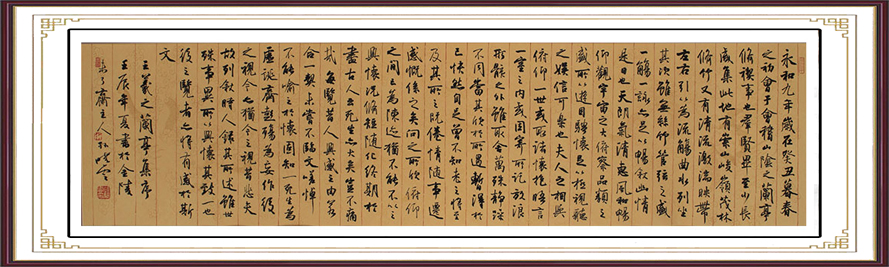 永和九年歲在癸丑暮春
之初會于會稽山陰之蘭亭
脩稧事也群賢畢至少長
咸集此地有崇山峻嶺茂林
脩竹又有清流激湍映帶
左右引以為流觴曲水列坐
其次雖無絲竹管弦之盛
一觴一詠亦足以暢敘幽情
是日也天朗氣清惠風和暢
仰觀宇宙之大俯察品類之
盛所以遊目騁懷足以極視聽
之娛信可樂也夫人之相與
俯仰一世或取諸懷抱晤言
一室之內或因寄所託放浪
形骸之外雖取舍萬殊靜躁
不同當其欣於所遇暫得於
己快然自足曾不知老之將至
及其所之既倦情隨事遷
感慨係之矣向之所欣俯仰
之間已為陳迹猶不能不以之
興懷況脩短隨化終期於
盡古人云死生亦大矣豈不痛
哉每覽昔人興感之由若
合一契未嘗不臨文嗟悼
不能喻之於懷固知一死生為
虛誕齊彭殤為妄作後
之視今亦猶今之視昔悲夫
故列敘時人錄其所述雖世
殊事異所以興懷其致一也
後之覽者亦將有感於斯
文
王羲之蘭亭集序
壬辰年夏書於金陵
齋主人